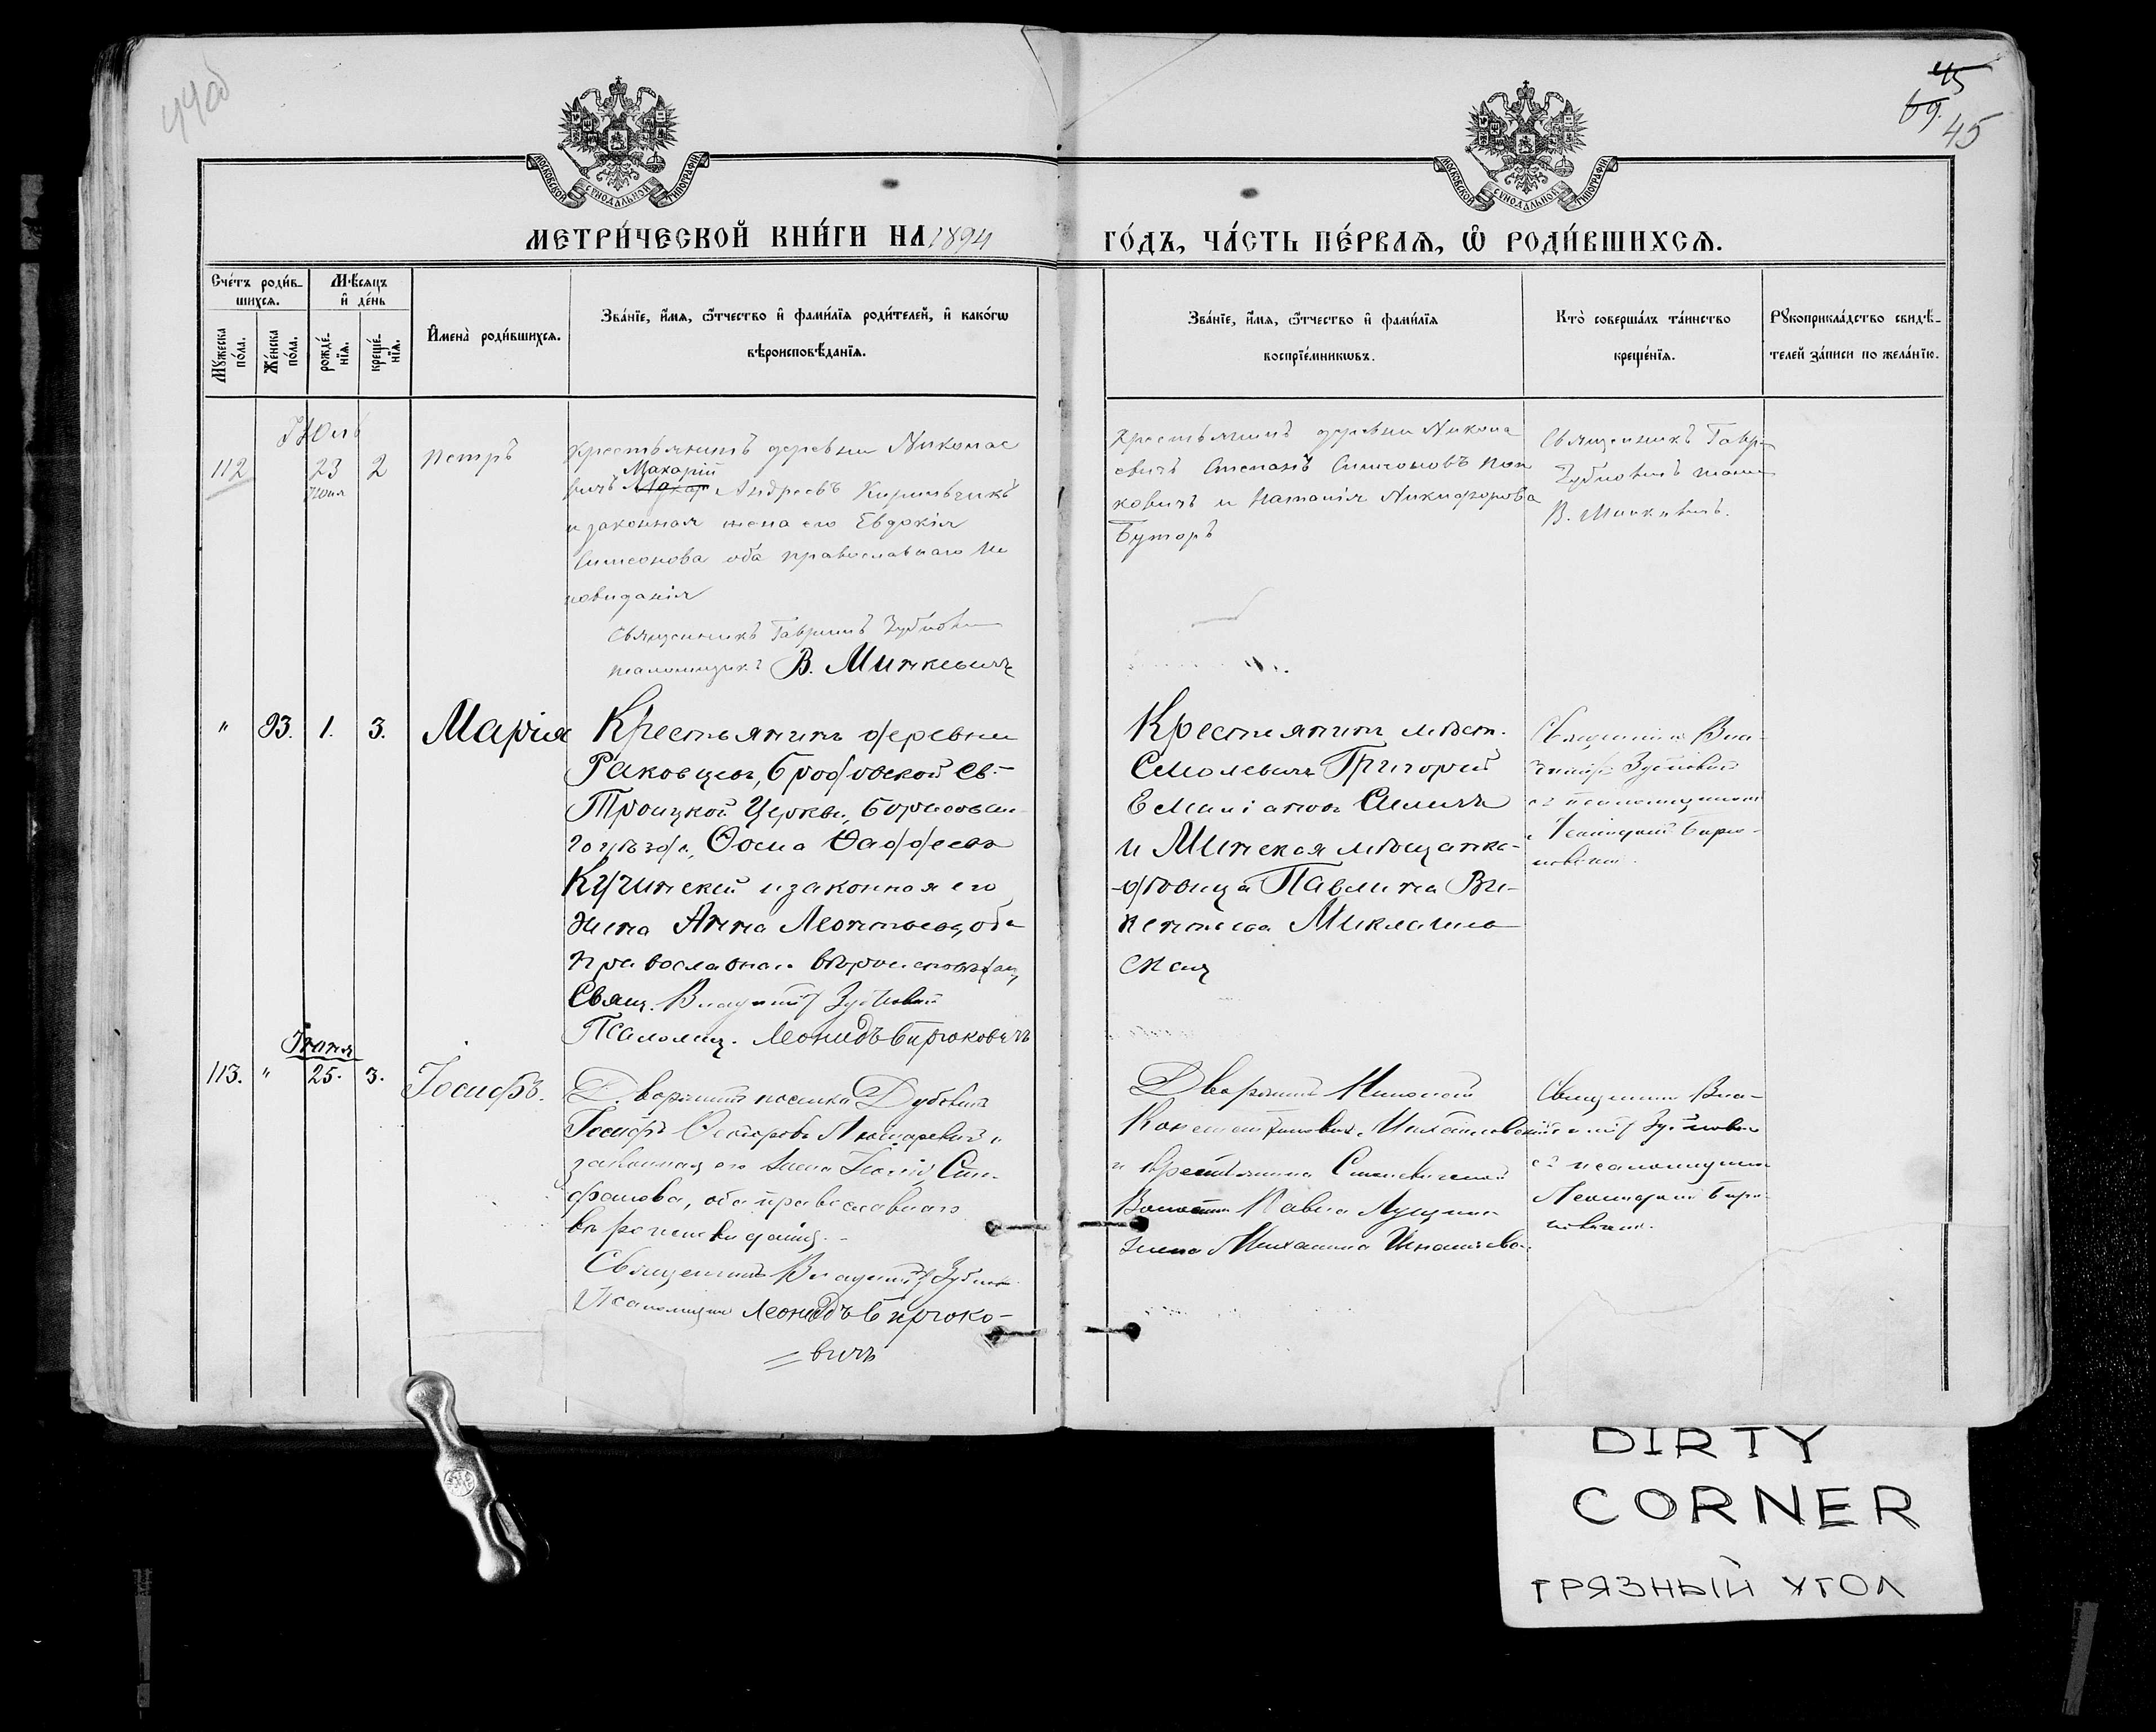 44об
45
69.
45
МОСКОВСКОЙ СѴНОДАЛЬНОЙ ТИПОГРАФІИ
МОСКОВСКОЙ СѴНОДАЛЬНОЙ ТИПОГРАФІИ
МЕТРИ́ЧЕСКОЙ КНИ́ГИ НА 1894 ГО́ДЪ, ЧА́СТЬ ПЕ́РВАѦ, Ѡ҆ РОДИ́ВШИХСѦ.
Сче́тъ роди́в-
шихсѧ.
Мꙋ́жеска по́ла.
Же́нска по́ла.
Мѣ́сѧцъ
и҆ де́нь
рожде́-
нїѧ.
креще́-
нїѧ.
И҆мена̀ роди́вшихсѧ.
Зва́нїе, и҆́мѧ, ѻ҆́тчество и҆ фами́лїѧ роди́телей, и҆ како́гѡ
вѣроисповѣ́данїѧ.
Зва́нїе, и҆́мѧ, ѻ҆́тчество и҆ фами́лїѧ
воспрїе́мникѡвъ.
Кто̀ соверша́лъ та́инство
креще́нїѧ.
Рꙋкоприкла́дство свидѣ́-
телей за́писи по жела́нїю.
Іюль
112
23
Іюня
2
Петръ
Крестьянинъ деревни Николае
вичъ Макарій Андреевъ Кирильчикъ
и законная жена его Евдокія
Симеонова оба православнаго Ис
повиданія
Священникъ Гавріилъ Зубкови
псаломщикъ В. Минкевичъ
Крестьянинъ деревни Никола
евичъ Степанъ Симеоновъ
ковичъ и Наталія Никифорова
Буторъ
Священникъ Гавр
Зубковичъ
В. Минкевичъ.
" 93. 1. 3. Марія
Крестьянинъ деревни
Раковцевъ, Бродовской Св.-
Троицкой Церкви, Борисовска-
го уѣзда, Ѳома Ѳаддеевъ
Кучинскій и законная его
жена Анна Леонтьева, оба
православнаго вѣроисповѣдан,
Свящ. Владиміръ Зубковичъ
Псаломщ. Леонидъ Бирюковичъ
Крестьянинъ мѣст.
Смолевичъ Григорій
Емиліановъ
и Минская мѣщанка-
-дѣвица Павлина Ви-
кентьева Миклашев
ская
Священникъ Вла-
диміръ Зубковичъ
съ псаломщикомъ
Леонидомъ Бирю-
ковичемъ.
Іюня
113. " 25. 3. Іосифъ.
Дворянинъ поселка Дубовикъ
Іосифъ
законная его жена
оба православнаго
вѣроисповиданія.-
Священникъ Владиміръ Зубков
Псаломщикъ Леонидъ Бирюко-
=вичъ
Дворянинъ Николай
Константиновичъ Михайловскій
и крестьянина Смолевичской
Волости Павла
жена Михалина Игнатьева.
Священникъ Вла-
диміръ Зубковичъ
съ псаломщикомъ
Леонидомъ Бирю-
ковичемъ.
DIRTY
CORNER
ГРЯЗНЫЙ УГОЛ